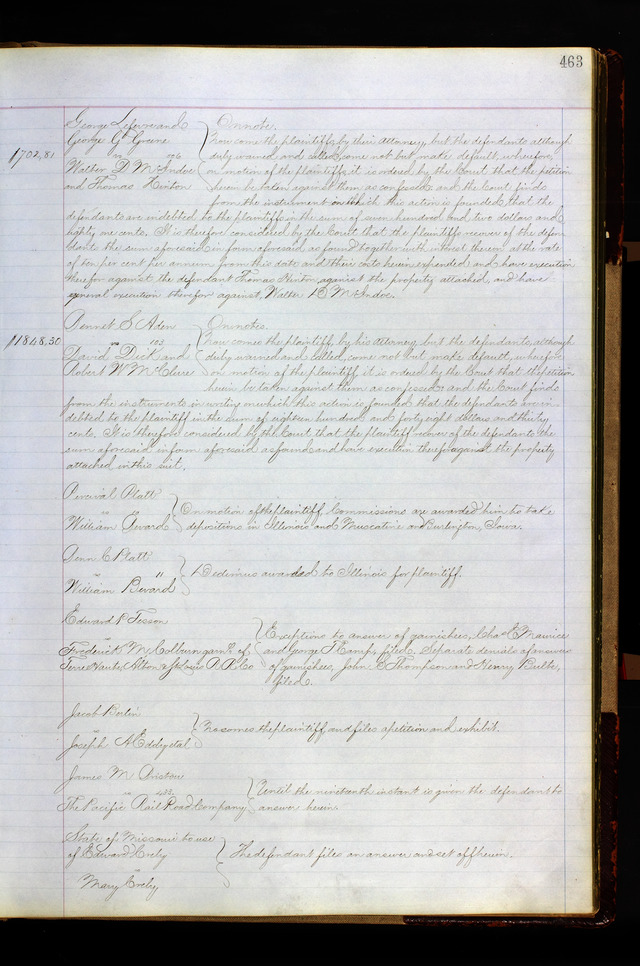 463
George Lefevre and } On note.
George G. Greene Now come the plaintiffs by their attorney, but the defendants although
$702,81 vs 196 duly warned and called, come not but make default, wherefore,
Walter D McIndoe on motion of the plaintiffs it is ordered by the Court that the petition
and Thomas Hinton herein be taken against them as confessed and the Court finds
from the instrument on which this action is founded that the
defendants are indebted to the plaintiffs in the sum of seven hundred and two dollars and
eighty one cents. It is therefore considered by the Court that the plaintiffs recover of the defen
dants the sum aforesaid in form aforesaid as found together with interest thereon at the rate
of ten per cent per annum from this date and their costs herein expended and have execution
therefor against the defendant Thomas Hinton against the property attached, and have
general execution therefor against Walter D McIndoe.
Bennet S Aden } On notes.
$1848,30 Now comes the plaintiff by his attorney but the defendants, although
vs 103
David Dick and duly warned and called, come not but make default, wherefore
Robert W McClure on motion of the plaintiff it is ordered by the Court that the petition
herein be taken against them as confessed and the Court finds
from the instruments in writing on which this action is founded that the defendants are in
debted to the plaintiff in the sum of eighteen hundred and forty eight dollars and thirty
cents. It is therefore considered by the Court that the plaintiff recover of the defendants the
sum aforesaid in form aforesaid as found and have execution therefor against the property
attached in this suit.
Percival Platt
vs } On motion of the plaintiff Commissions are awarded him to take
William Bevard depositions in Illinois and Muscatine and Burlington, Iowa.
Benn C Platt
vs " } Dedimus awarded to Illinois for plaintiff.
William Bevard
Edward P Tesson
vs } Exceptions to answer of garnishees, Chas E Maurice
Frederick M Colburn garnh. of and George T Camp, filed. Separate denials of answers
Terre Haute, Alton & St Louis R R Co of garnishees, John C Thompson and Henry Bulte,
filed.
Jacob Berlin
vs } Now comes the plaintiff and files a petition and exhibit.
Joseph A Eddy et al
James M Bristow
vs } Until the nineteenth instant is given the defendant to
The Pacific Rail Road Company answer herein.
State of Missouri to use
of Edward Crely } The defendant files an answer and set off herein.
Mary Crely